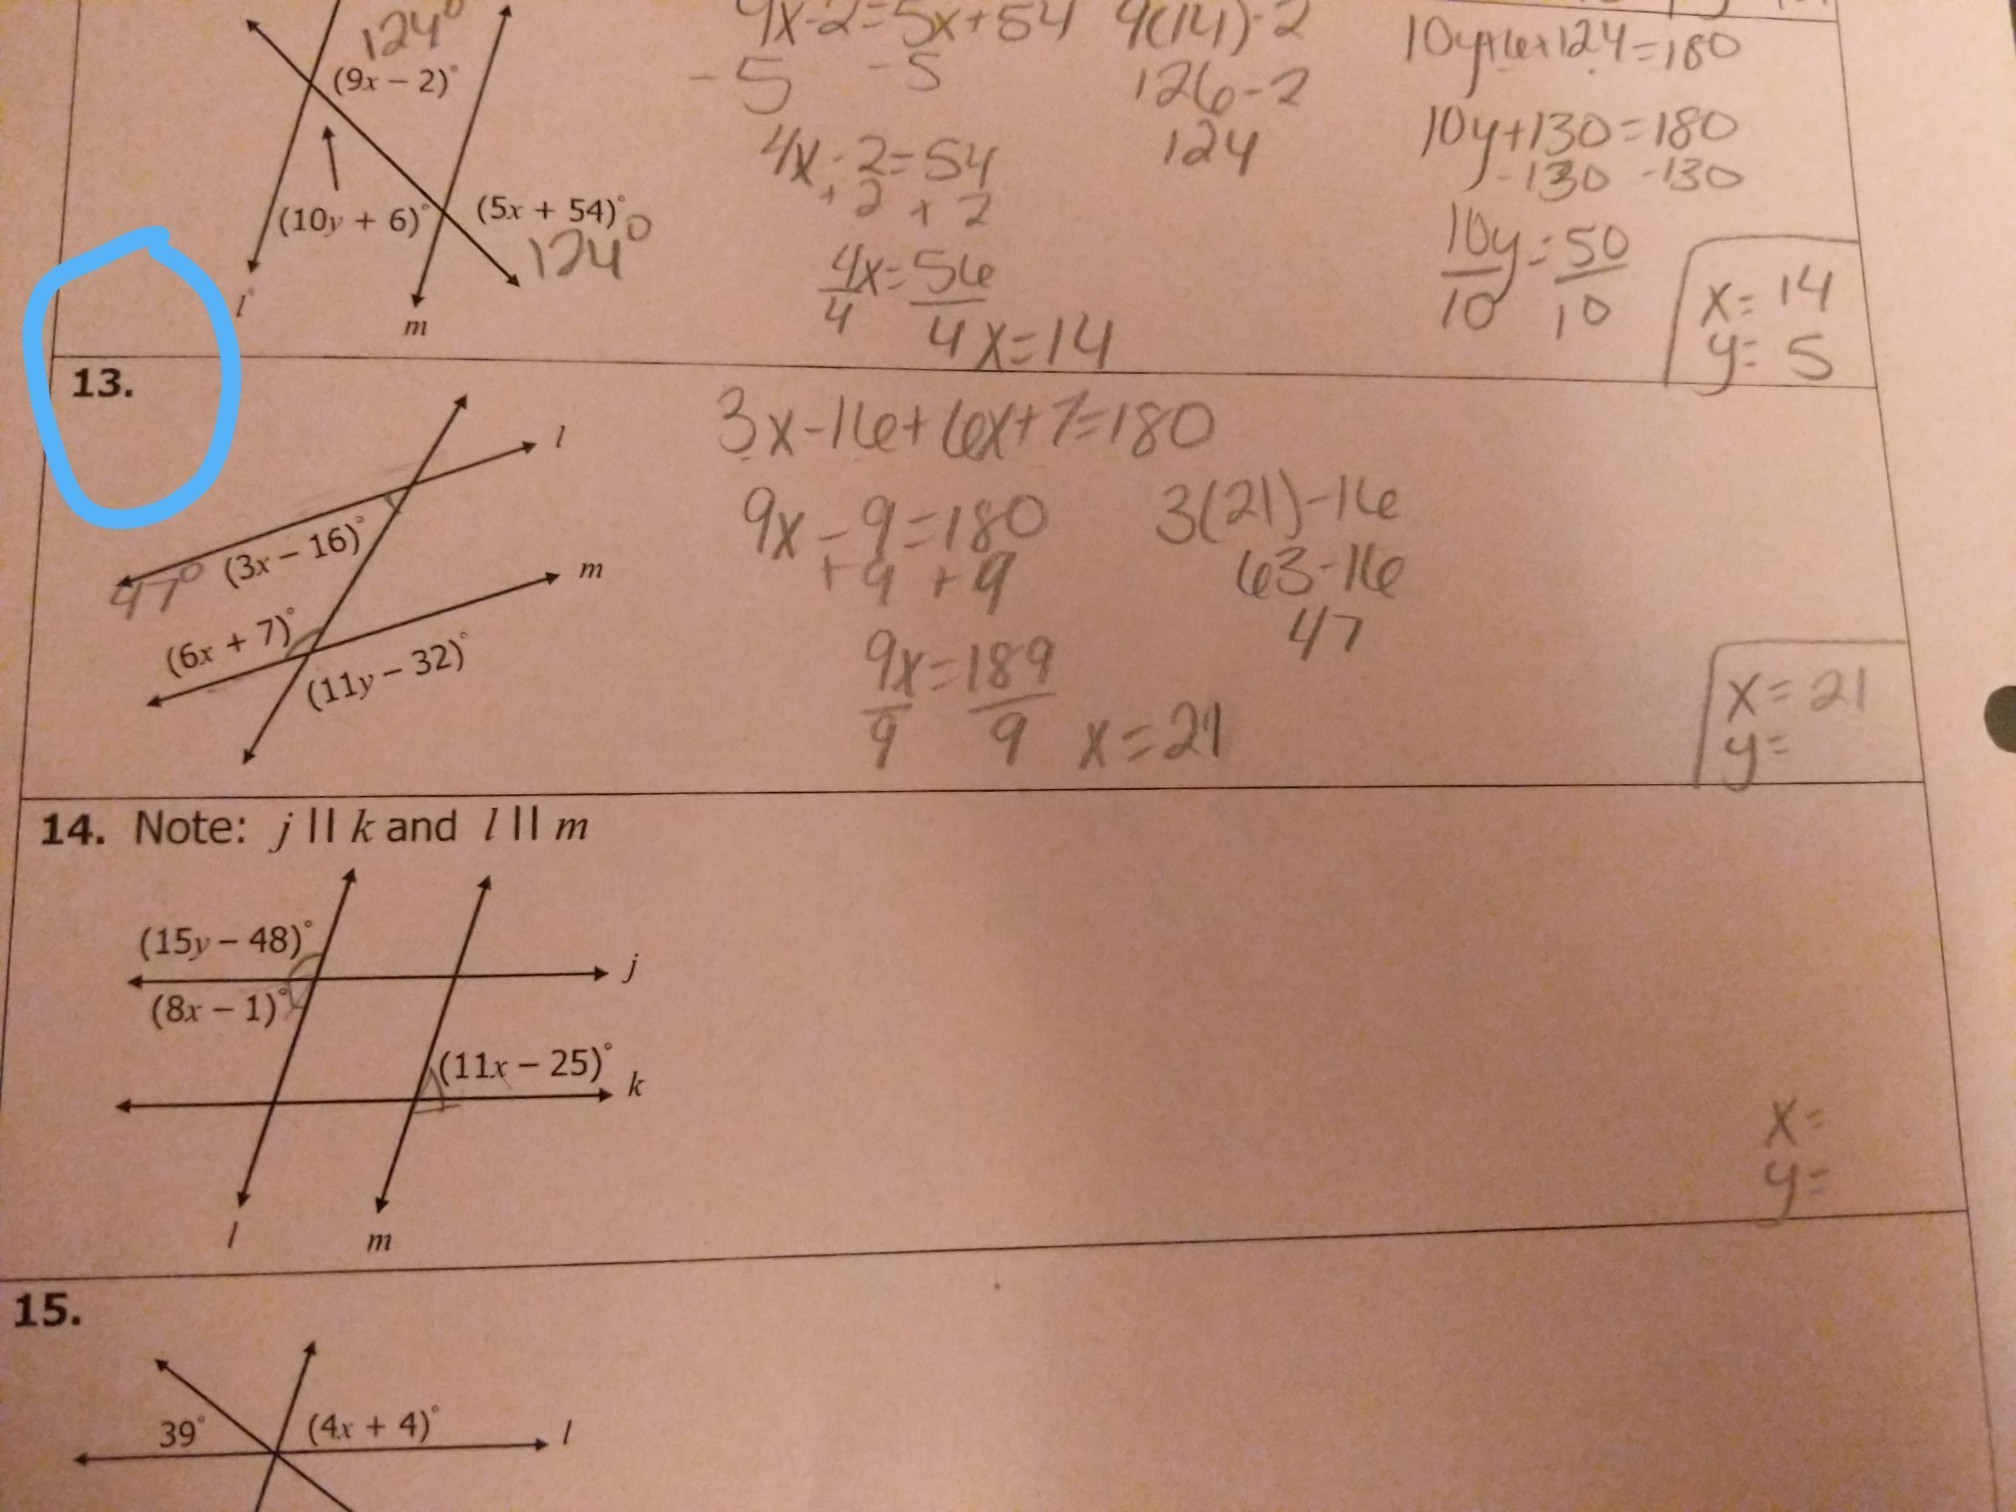 124°
(9x – 2)°
(10y + 6)°
(5x + 54)°
124°
l
m
9x-2=5x+54
-5 -5
4x-2=54
+2 +2
4x=56
4 4
x=14
9(14)-2
126-2
124
10y+6+124=180
10y+130=180
-130 -130
10y=50
10 10
x=14
y=5
13.
l
(3x – 16)°
47°
m
(6x + 7)°
(11y – 32)°
3x-16+6x+7=180
9x-9=180
+9 +9
9x=189
9 9
x=21
3(21)-16
63-16
47
x=21
y=
14. Note: j || k and l || m
(15y – 48)°
j
(8x – 1)°
(11x – 25)°
k
l
m
x=
y=
15.
39°
(4x + 4)°
l